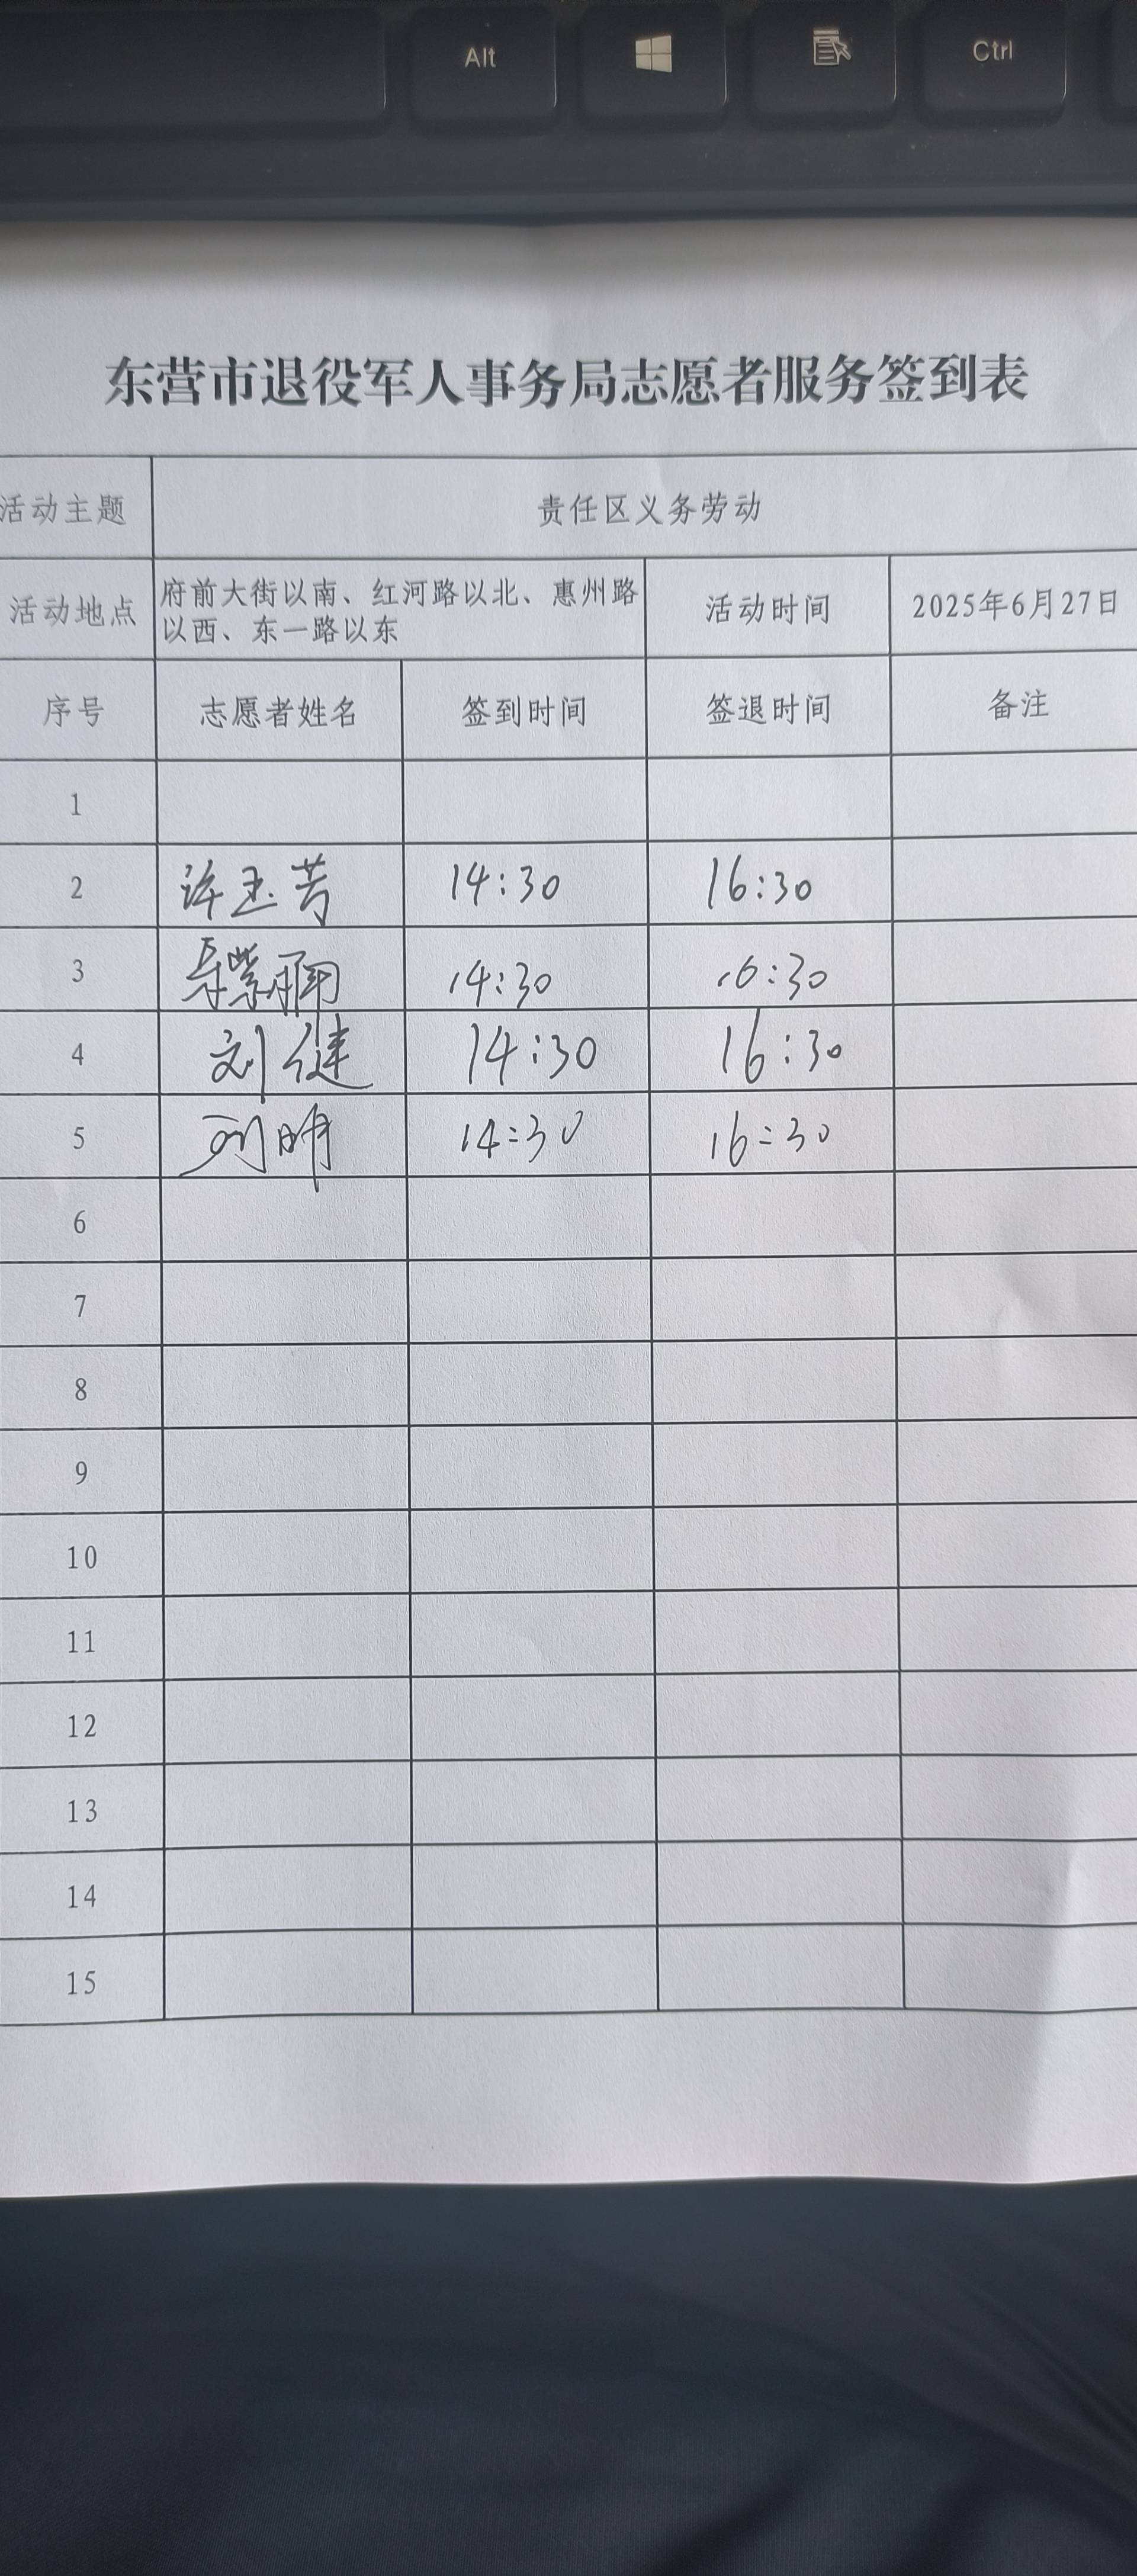 Alt
Ctrl
东营市退役军人事务局志愿者服务签到表
活动主题 责任区义务劳动
活动地点 府前大街以南、红河路以北、惠州路
以西、东一路以东 活动时间 2025年6月27日
序号 志愿者姓名 签到时间 签退时间 备注
1
2 许玉芳 14:30 16:30
3 14:30 16:30
4 刘健 14:30 16:30
5 刘明 14:30 16:30
6
7
8
9
10
11
12
13
14
15